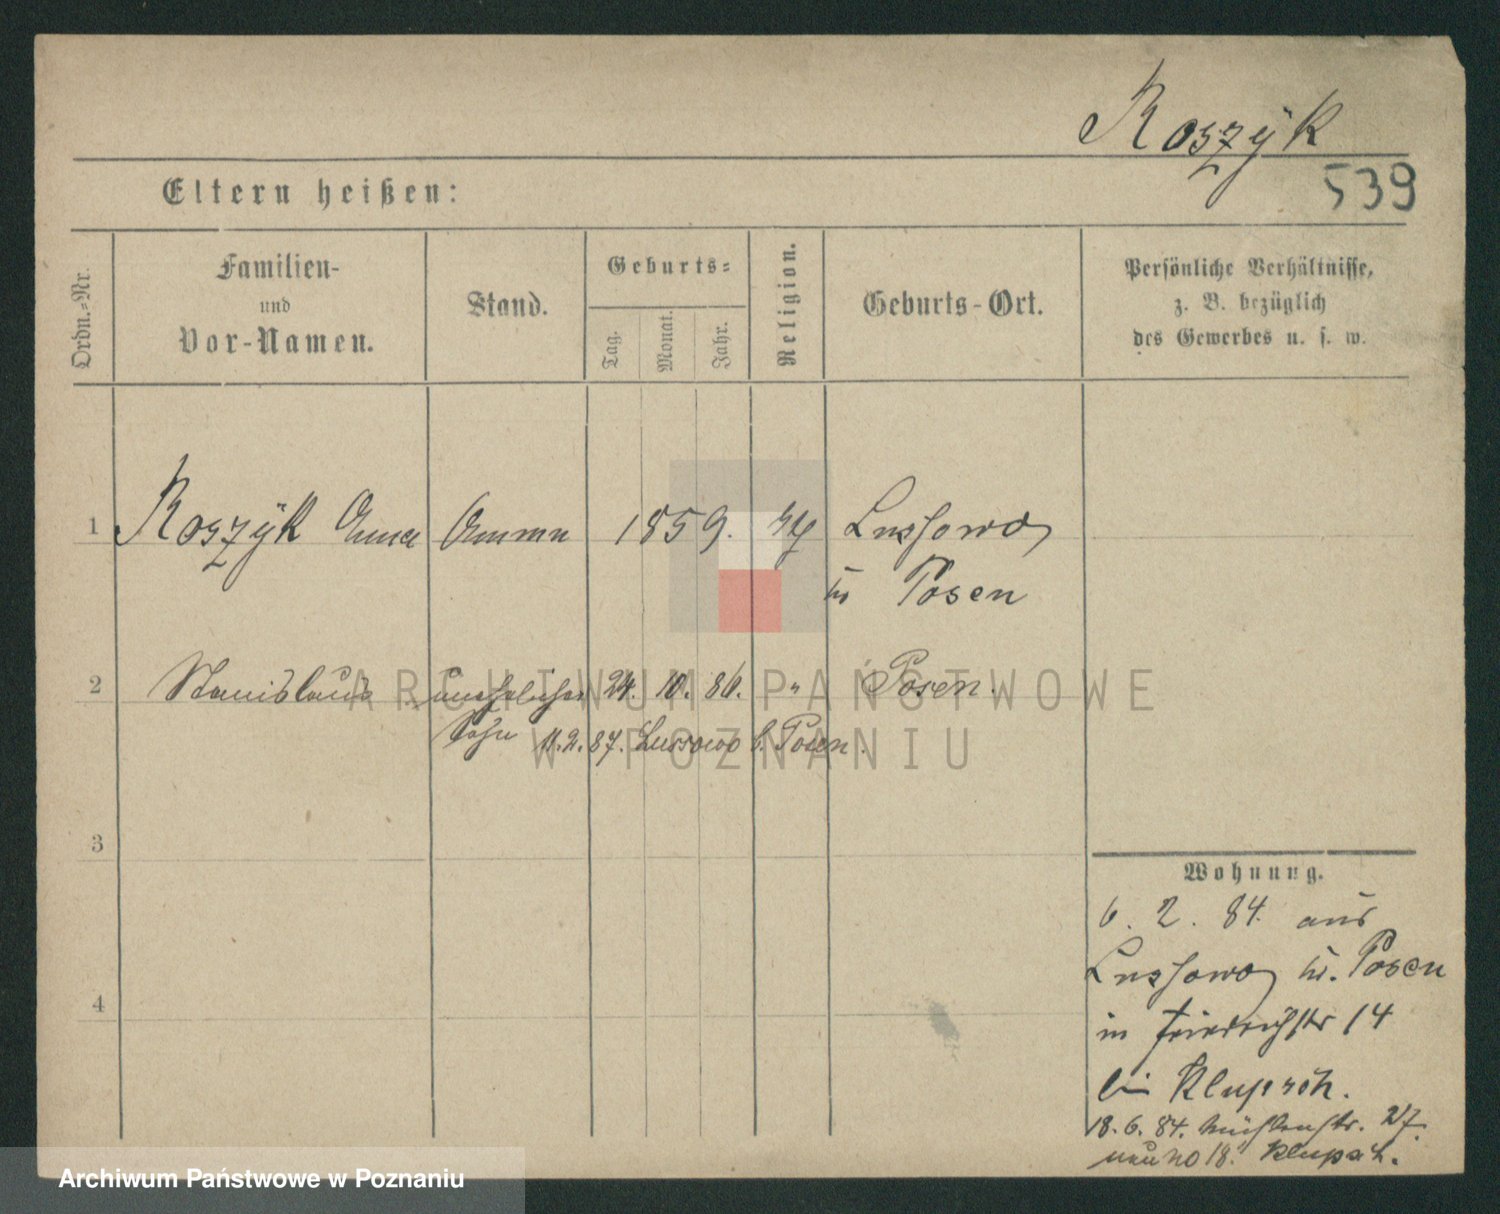 Roszÿk
539
Eltern heißen:
Ordn.-Nr.
Familien-
und
Vor-Namen.
Stand.
Geburts-
Tag.
Monat.
Jahr.
Religion.
Geburts-Ort.
Persönliche Verhältnisse,
z. B. bezüglich
des Gewerbes u. s. w.
1 Roszÿk Anna Amme 1859. Lussowo
Posen
2 Stanislaus unehelicher 24. 10. 86. " Posen.
Sohn 11.2.87. Lussowo b. Posen.
3
4
Wohnung.
6. 2. 84. aus
Lussowo Posen
in Friedrichstr 14
bei Klupsch.
18. 6. 84. Mühlenstr. 27.
neu no 18. Klupsch.
ARCHIWUM PAŃSTWOWE
W POZNANIU
Archiwum Państwowe w Poznaniu